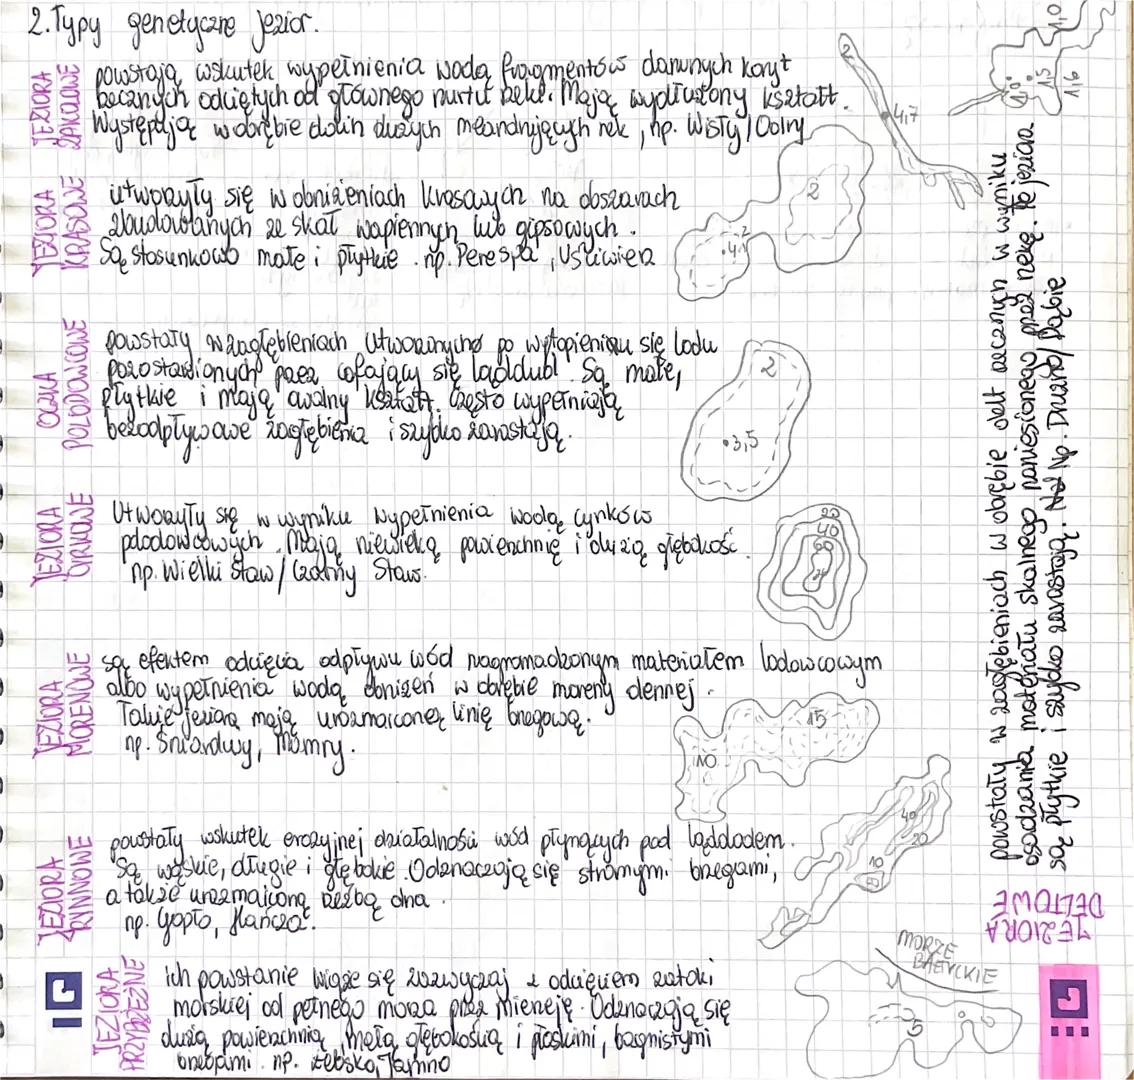 2. Typy genetyczne jezior.
JEZIORA
ZAKOLOWE
powstają wskutek wypełnienia wodą fragmentów dawnych koryt
bocznych odciętych od głównego nurtu rzeki. Mają wydłużony kształt.
Występują w obrębie dolin dużych meandrujących rzek, np. Wisły/Odry
JEZIORA
KRASOWE
utworzyły się w obniżeniach krasowych na obszarach
zbudowanych ze skał wapiennych lub gipsowych.
Są stosunkowo małe i płytkie. np. Perespa, Uściwierz
OCZKA
POLODOWCOWE
powstały w zagłębieniach utworzonych po wytopieniu się lodu
pozostawionych przez cofający się lądolód. Są małe,
płytkie i mają owalny kształt. Często wypełniają
bezodpływowe zagłębienia i szybko zarastają.
JEZIORA
CYRKOWE
Utworzyły się w wyniku wypełnienia wodą cyrków
polodowcowych. Mają niewielką powierzchnię i dużą głębokość.
np. Wielki Staw/Czarny Staw.
JEZIORA
MORENOWE
są efektem odcięcia odpływu wód nagromadzonym materiałem lodowcowym
albo wypełnienia wodą obniżeń w obrębie moreny dennej.
Takie jeziora mają urozmaiconą linię brzegową.
np. Śniardwy, Mamry.
JEZIORA
RYNNOWE
powstały wskutek erozyjnej działalności wód płynących pod lądolodem.
Są wąskie, długie i głębokie. Odznaczają się stromymi brzegami,
a także urozmaiconą rzeźbą dna.
np. Gopło, Hańcza.
JEZIORA
PRZYBRZEŻNE
ich powstanie wiąże się zazwyczaj z odcięciem zatoki
morskiej od pełnego morza przez mierzeję. Odznaczają się
dużą powierzchnią, małą głębokością i płaskimi, bagnistymi
brzegami. np. Łebsko, Jamno
JEZIORA
DELTOWE
powstały w zagłębieniach w obrębie delt rzecznych w wyniku
osadzania materiału skalnego naniesionego przez rzekę. Te jeziora
są płytkie i szybko zarastają. Np. Druzno/Dąbie
2
4,7
1,0
1,0
1,5
1,6
2
2
4,1
2
3,5
20
40
60
15
10
40
20
10
MORZE
BAŁTYCKIE
5